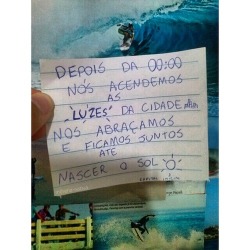 DEPOIS DA 00:00
NÓS ACENDEMOS
AS
"LUZES" DA CIDADE
NOS ABRAÇAMOS
E FICAMOS JUNTOS
ATÉ
NASCER O SOL